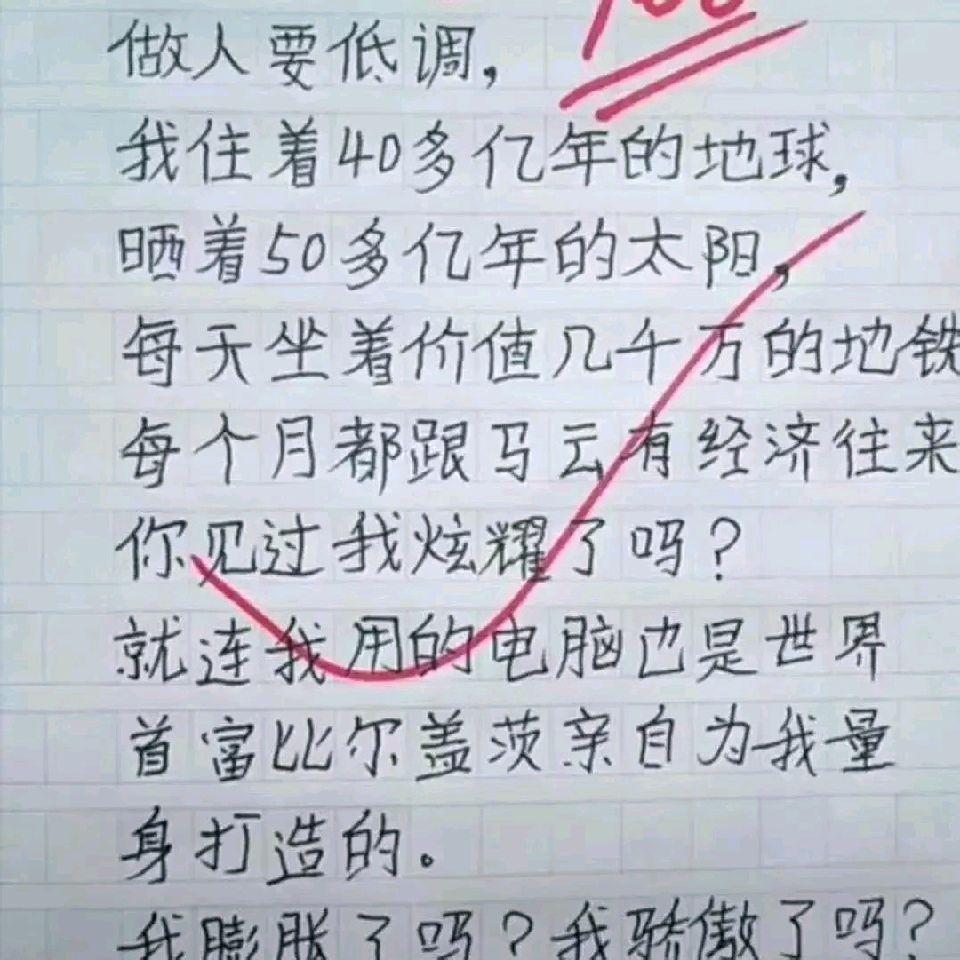 100
做人要低调,
我住着40多亿年的地球,
晒着50多亿年的太阳,
每天坐着价值几千万的地铁
每个月都跟马云有经济往来
你见过我炫耀了吗?
就连我用的电脑也是世界
首富比尔盖茨亲自为我量
身打造的。
我膨胀了吗?我骄傲了吗?